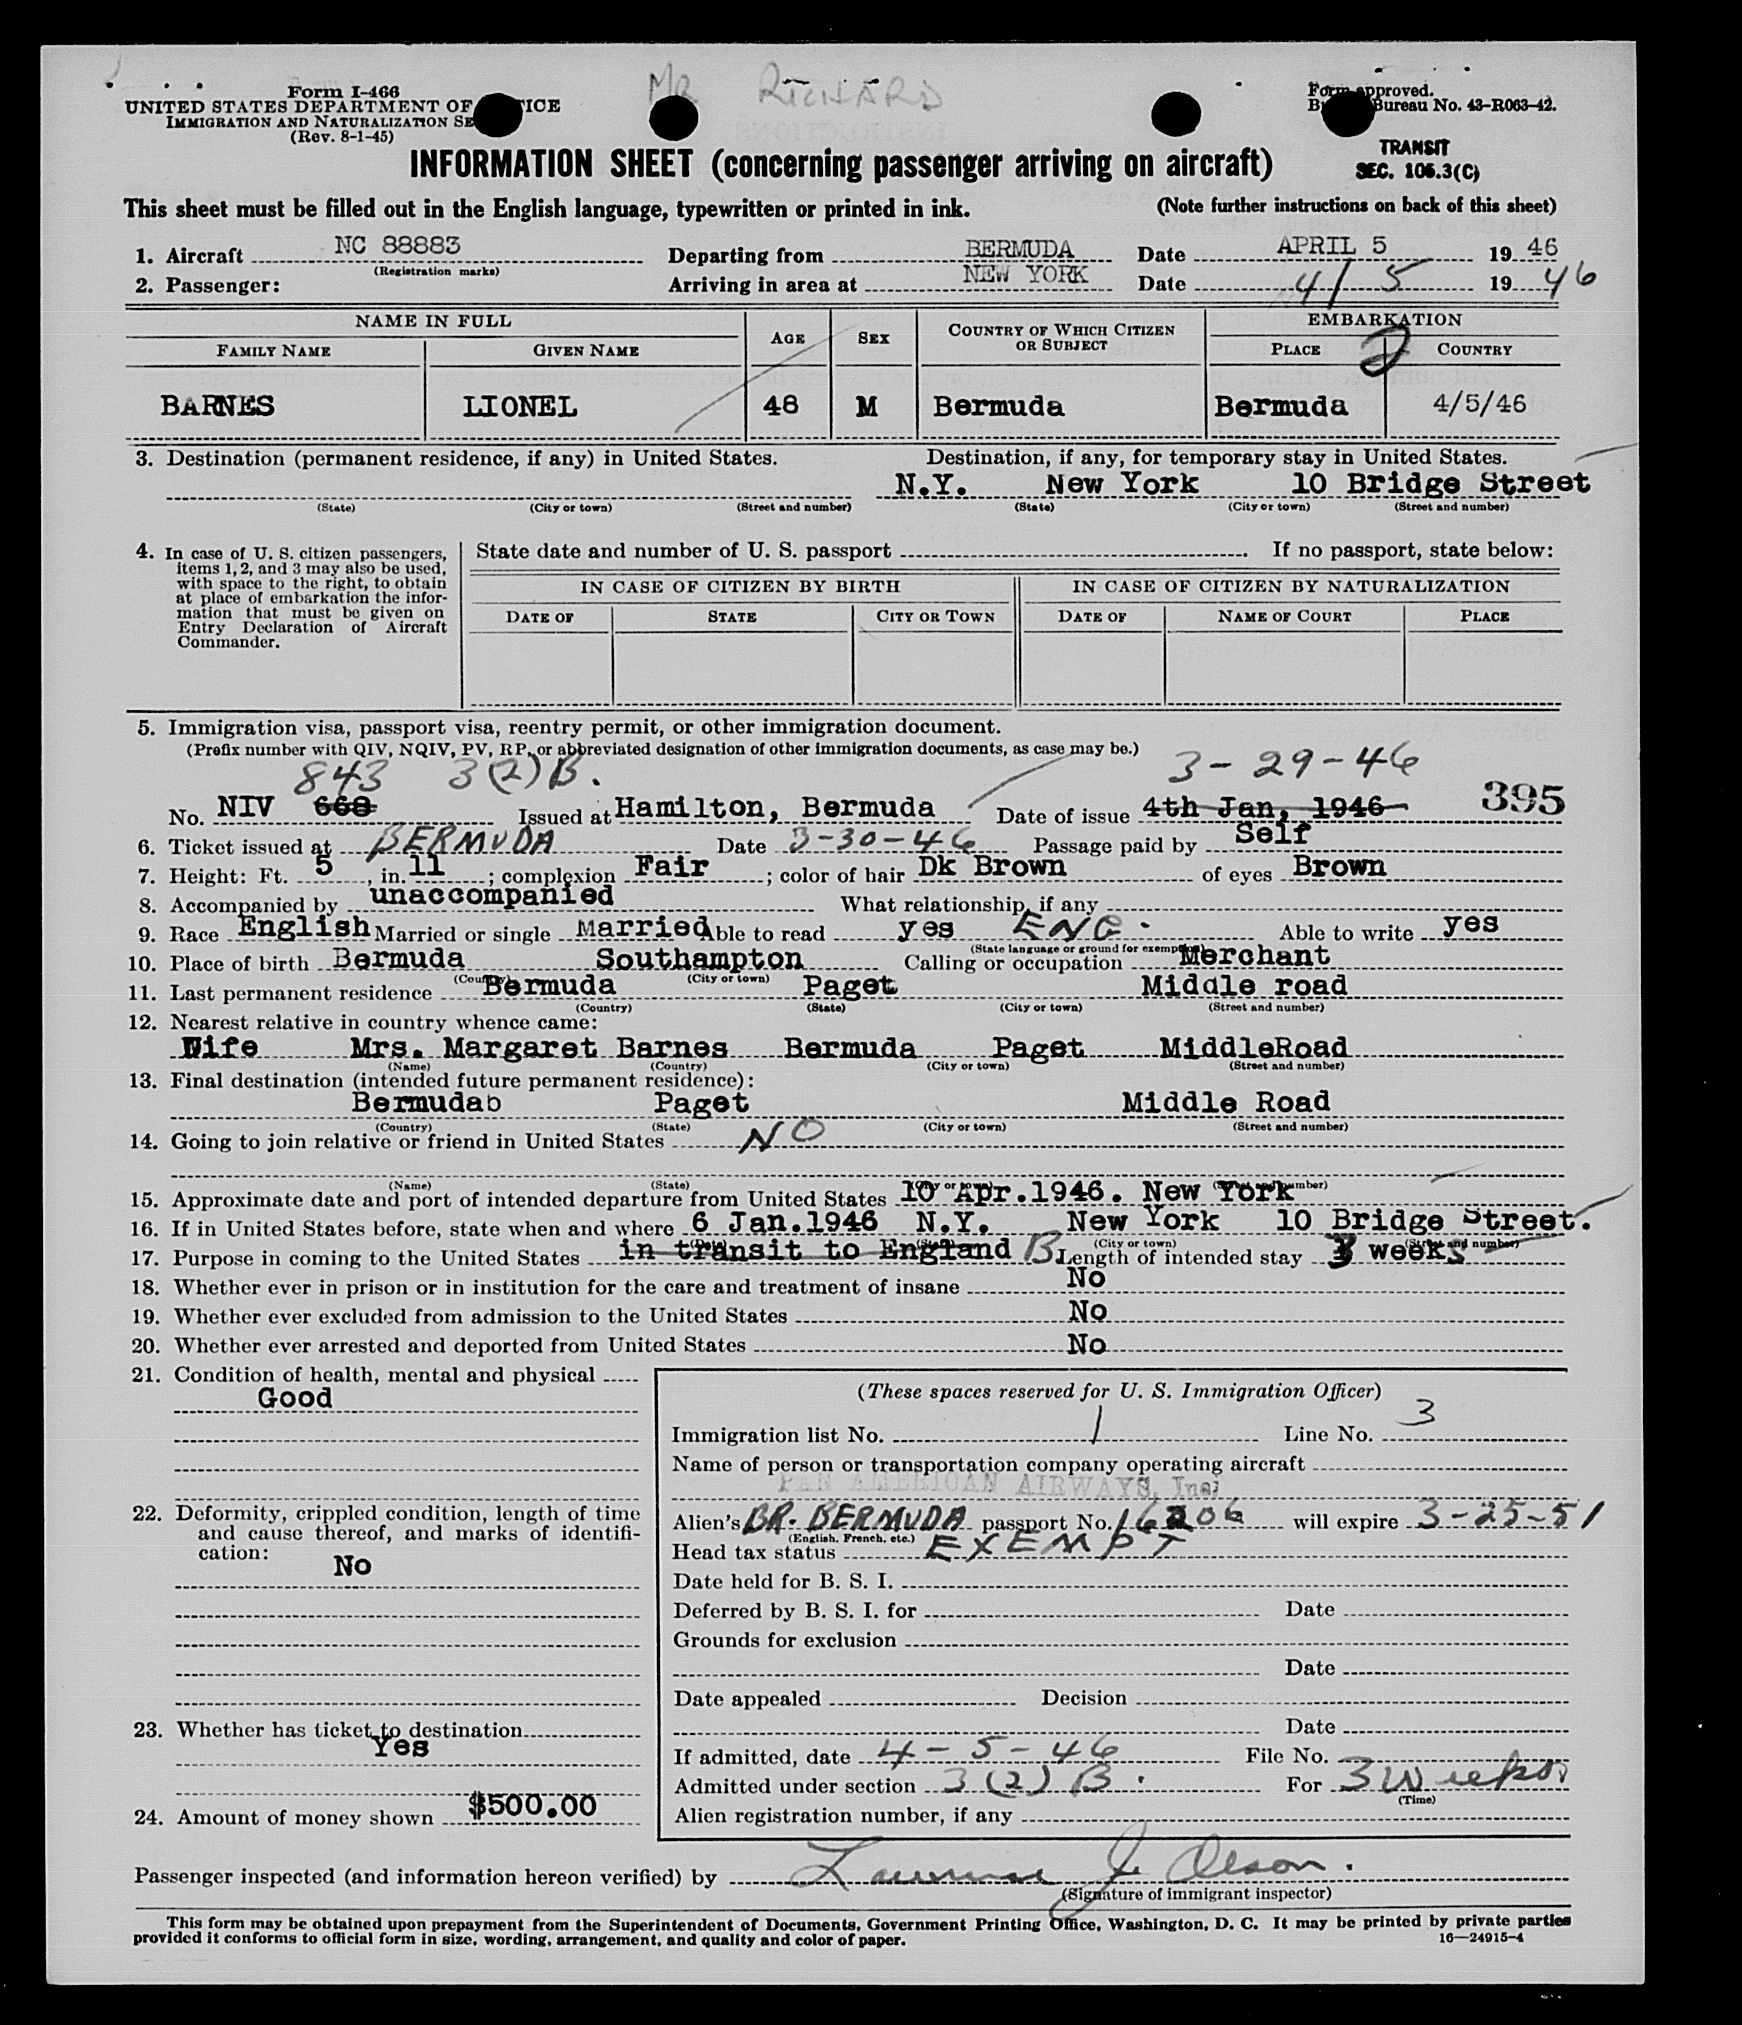 MR RICHARD
Form I-466
UNITED STATES DEPARTMENT OF ICE
IMMIGRATION AND NATURALIZATION SE
(Rev. 8-1-45)
Form approved.
Bureau No. 43-R063-42.
TRANSIT
SEC. 106.3(C)
INFORMATION SHEET (concerning passenger arriving on aircraft)
This sheet must be filled out in the English language, typewritten or printed in ink. (Note further instructions on back of this sheet)
1. Aircraft NC 88883 Departing from BERMUDA Date APRIL 5 19 46
(Registration marks)
2. Passenger: Arriving in area at NEW YORK Date 4/5 19 46
NAME IN FULL AGE SEX COUNTRY OF WHICH CITIZEN OR SUBJECT EMBARKATION
FAMILY NAME GIVEN NAME PLACE 2 COUNTRY
BARNES LIONEL 48 M Bermuda Bermuda 4/5/46
3. Destination (permanent residence, if any) in United States. Destination, if any, for temporary stay in United States.
N.Y. New York 10 Bridge Street
(State) (City or town) (Street and number) (State) (City or town) (Street and number)
4. In case of U. S. citizen passengers, items 1, 2, and 3 may also be used, with space to the right, to obtain at place of embarkation the information that must be given on Entry Declaration of Aircraft Commander.
State date and number of U. S. passport . If no passport, state below:
IN CASE OF CITIZEN BY BIRTH IN CASE OF CITIZEN BY NATURALIZATION
DATE OF STATE CITY OR TOWN DATE OF NAME OF COURT PLACE
5. Immigration visa, passport visa, reentry permit, or other immigration document.
(Prefix number with QIV, NQIV, PV, RP, or abbreviated designation of other immigration documents, as case may be.)
843 3(2)B. 3-29-46
No. NIV 668 Issued at Hamilton, Bermuda Date of issue 4th Jan, 1946 395
6. Ticket issued at BERMUDA Date 3-30-46 Passage paid by Self
7. Height: Ft. 5, in. 11; complexion Fair; color of hair Dk Brown of eyes Brown
8. Accompanied by unaccompanied What relationship, if any
9. Race English Married or single Married Able to read yes ENG. Able to write yes
(State language or ground for exemption)
10. Place of birth Bermuda Southampton Calling or occupation Merchant
(Country) (City or town)
11. Last permanent residence Bermuda Paget Middle road
(Country) (State) (City or town) (Street and number)
12. Nearest relative in country whence came:
Wife Mrs. Margaret Barnes Bermuda Paget MiddleRoad
(Name) (Country) (City or town) (Street and number)
13. Final destination (intended future permanent residence):
Bermudab Paget Middle Road
(Country) (State) (City or town) (Street and number)
14. Going to join relative or friend in United States NO
(Name) (State) (City or town) (Street and number)
15. Approximate date and port of intended departure from United States 10 Apr.1946. New York
16. If in United States before, state when and where 6 Jan.1946 N.Y. New York 10 Bridge Street.
(Date) (State) (City or town) (Street and number)
17. Purpose in coming to the United States in transit to England B Length of intended stay 3 weeks
18. Whether ever in prison or in institution for the care and treatment of insane No
19. Whether ever excluded from admission to the United States No
20. Whether ever arrested and deported from United States No
21. Condition of health, mental and physical
Good
22. Deformity, crippled condition, length of time and cause thereof, and marks of identification:
No
23. Whether has ticket to destination
Yes
24. Amount of money shown $500.00
(These spaces reserved for U. S. Immigration Officer)
Immigration list No. 1 Line No. 3
Name of person or transportation company operating aircraft
PAN AMERICAN AIRWAYS, Inc.
Alien's BR. BERMUDA passport No. will expire 3-25-51
(English, French, etc.)
Head tax status EXEMPT
Date held for B. S. I.
Deferred by B. S. I. for Date
Grounds for exclusion
Date
Date appealed Decision
Date
If admitted, date 4-5-46 File No.
Admitted under section 3(2)B. For 3 Weeks
(Time)
Alien registration number, if any
Passenger inspected (and information hereon verified) by Lawrence J. Olson.
(Signature of immigrant inspector)
This form may be obtained upon prepayment from the Superintendent of Documents, Government Printing Office, Washington, D. C. It may be printed by private parties
provided it conforms to official form in size, wording, arrangement, and quality and color of paper. 16—24915-4